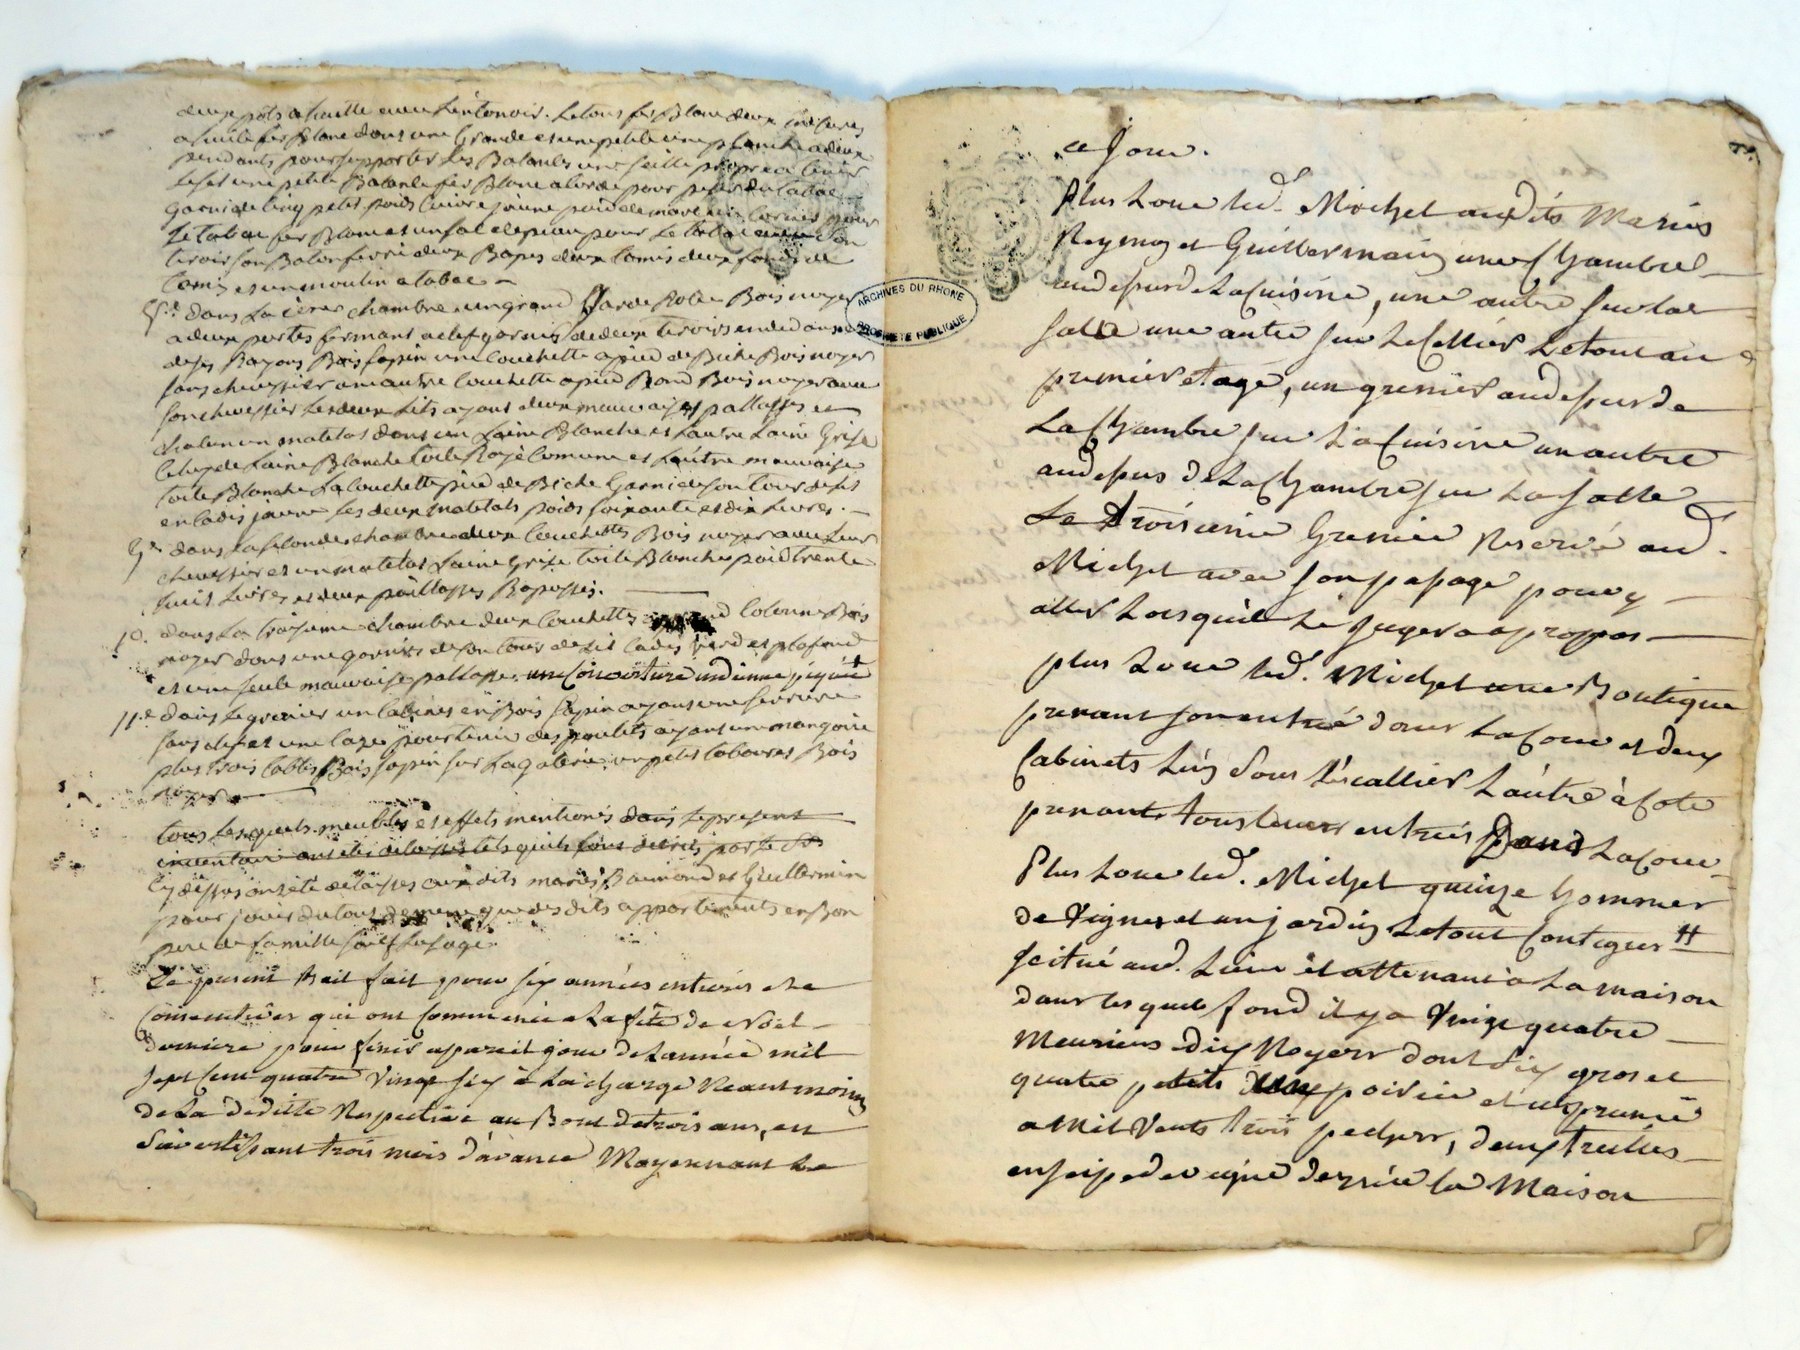 deux pots a huille avec l'entonoir. Le tout fer Blanc deux mesures
a huile fer Blanc dont une Grande et une petite une planche a deux
pendants pour supporter Les Balances une seille propre a tenir
Le sel une petite Balance fer Blanc a corde pour peser du tabac
garni de cinq petits poids cuivre jaune poid de marc
Le tabac fer Blanc et un sac de peau pour Le tabac
tiroir son Baton ferré deux deux tamis deux fonds de
tamis et un moulin a tabac
8e. dans La 1ere chambre un grand Garde Robe Bois noyer
a deux portes fermant a clef garnies de deux tiroirs en dedans
de ses Rayons Bois sapin une couchette a pied de Biche Bois noyer
sans chevessier une autre couchette a pied Rond Bois noyer avec
son chevessier Les deux Lits ayant deux mauvaises paillasses et
chacun un matelas dont un Laine Blanche et L'autre Laine Grise
Celuy de Laine Blanche toile Rayé Comune et L'autre mauvaise
toile Blanche La Couchette pied de Biche Garnie de son tour de Lit
en cadis jaune Les deux matelats poids soixante et dix Livres.
9e. dans La seconde chambre deux Couchettes Bois noyer avec Leur
chevessier et un matelas Laine Grise toile Blanche poid trente
huit Livres et deux paillasses
10. dans La troisieme chambre deux Couchettes Colonne Bois
noyer dont une garnie de son tour de Lit Cadis verd et plafond
et une seule mauvaise paillasse. une Couverture indienne piquée
11.e dans Le grenier un Cabinet en Bois sapin ayant une serrure
sans clef et une Cage pour tenir des poulets ayant un mangoire
plus trois tables Bois sapin sur La galerie, un petit tabouret Bois
noyer
tous Lesquels meubles et effets mentionés dans Le present
inventaire ont étés délaissés tels quils sont décris par Le
Cy dessus ont été délaissés aux dits mariés Raimond et Guillermin
pour jouir du tout de meme que des dits appartements en Bon
pere de famille sauf Lusage
Le present Bail fait pour six années entieres et
Consecutives qui ont Commencé a La fête de Noël
derniere pour finir a pareil jour de L'année mil
sept Cent quatre vingt six à La charge Neantmoins
de La déditte Respective au Bout de trois ans, en
s'avertissant trois mois d'avance Moyennant Le
ce Jour.
Plus Loue led. Michel auxdits Mariés
Reymond et Guillermain une Chambre
au dessus de La Cuisine, une autre sur La
Salle une autre sur Le Cellier Le tout au
premier étage, un grenier au dessus de
La Chambre sur La Cuisine un autre
au dessus de La Chambre sur La salle
Le troisieme Grenier Reservé aud.
Michel avec son passage pour y
aller Lorsqu'il Le Jugera a propos
plus Loue led. Michel une Boutique
prenant son entrée dans La Cour et deux
Cabinets L'un sous L'escallier L'autre à Coté
prenants tous leurs entrées Dans La Cour
Plus Loue led. Michel quinze hommes
de Vignes et un jardin Le tout Contigus #
scitué aud. Lieu et attenant a La maison
dans les quels fond il y a Vingt quatre
Meuriers dix Noyers dont six gros et
quatre petits poirier et un prunié
a mil Vents trois pechers, deux treilles
en seipe de vigne derrière la Maison
ARCHIVES DU RHONE
PROPRIÉTÉ PUBLIQUE